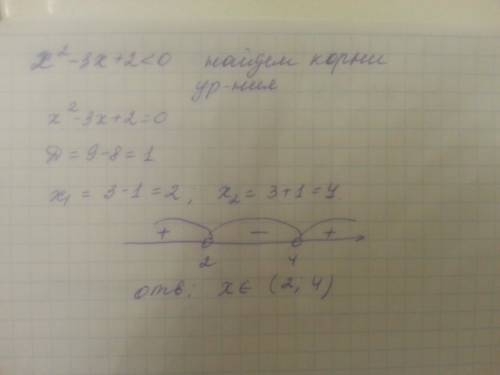 x²-3x+2<0 найдем корни
ур-ния
x²-3x+2=0
Д=9-8=1
x₁=3-1=2, x₂=3+1=4
+ - +
2 4
отв: x∈(2;4)